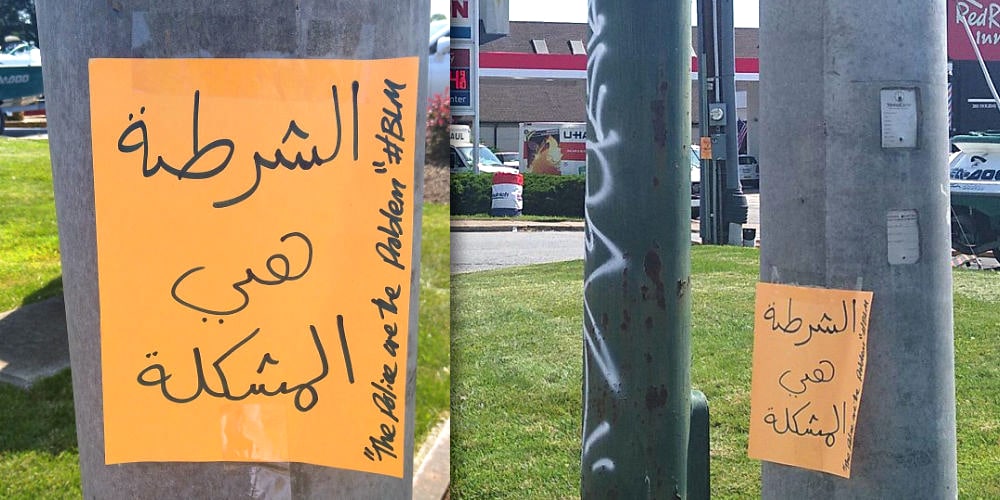 الشرطة
هي
المشكلة
"The Police are the Problem" #BLM
N
U-HAUL
Red R
Inn
الشرطة
هي
المشكلة
"The Police are the Problem" #BLM